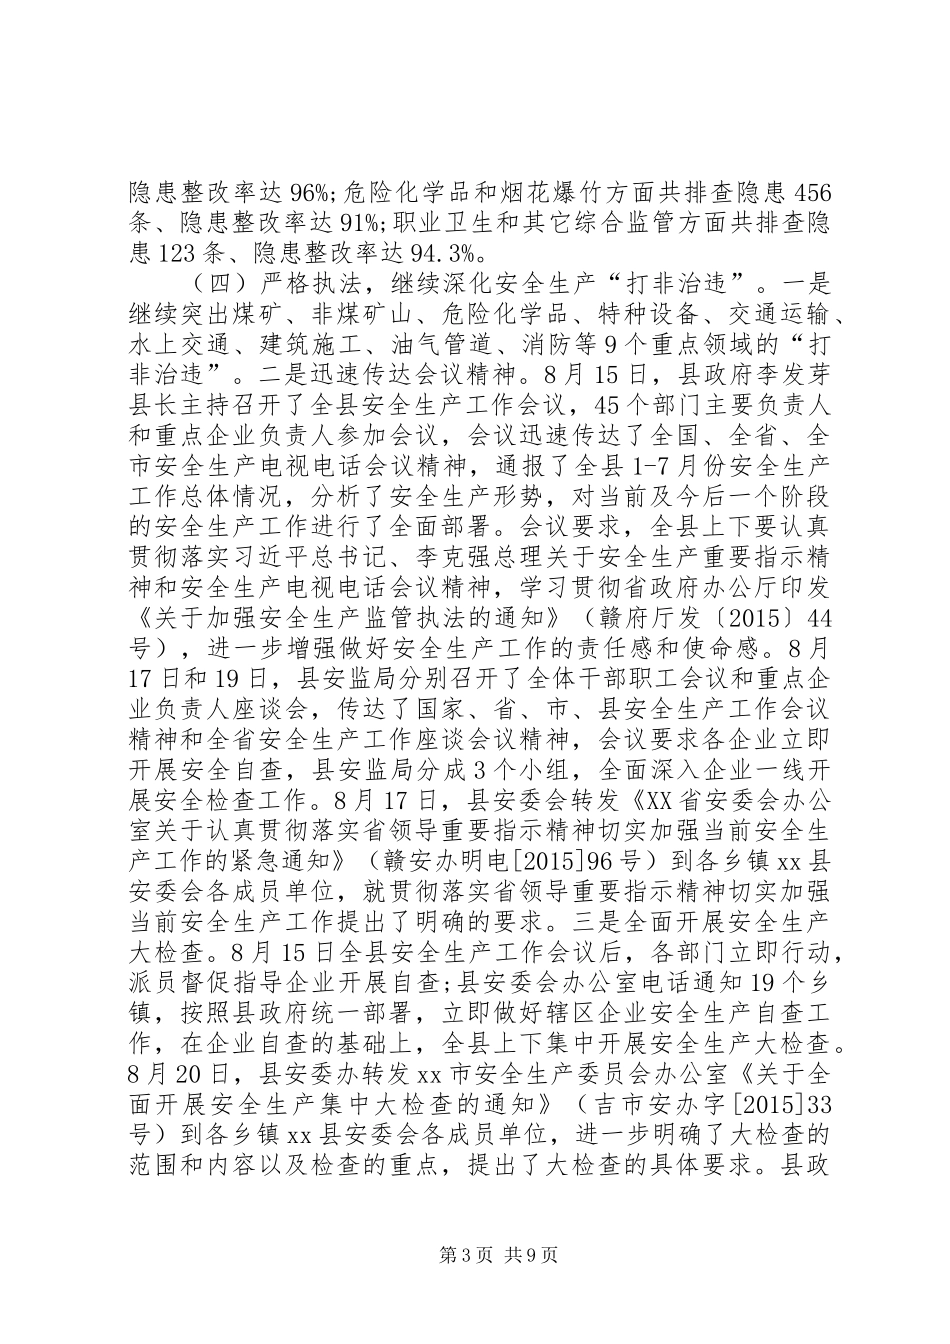 隐患整改率达 96%;危险化学品和烟花爆竹方面共排查隐患 456
条、隐患整改率达 91%;职业卫生和其它综合监管方面共排查隐
患 123 条、隐患整改率达 94.3%。
（四）严格执法，继续深化安全生产“打非治违”。一是
继续突出煤矿、非煤矿山、危险化学品、特种设备、交通运输、
水上交通、建筑施工、油气管道、消防等 9 个重点领域的“打
非治违”。二是迅速传达会议精神。8 月 15 日，县政府李发芽
县长主持召开了全县安全生产工作会议，45 个部门主要负责人
和重点企业负责人参加会议，会议迅速传达了全国、全省、全
市安全生产电视电话会议精神，通报了全县 1-7 月份安全生产
工作总体情况，分析了安全生产形势，对当前及今后一个阶段
的安全生产工作进行了全面部署。会议要求，全县上下要认真
贯彻落实习近平总书记、李克强总理关于安全生产重要指示精
神和安全生产电视电话会议精神，学习贯彻省政府办公厅印发
《关于加强安全生产监管执法的通知》（赣府厅发〔2015〕44
号），进一步增强做好安全生产工作的责任感和使命感。8 月
17 日和 19 日，县安监局分别召开了全体干部职工会议和重点企
业负责人座谈会，传达了国家、省、市、县安全生产工作会议
精神和全省安全生产工作座谈会议精神，会议要求各企业立即
开展安全自查，县安监局分成 3 个小组，全面深入企业一线开
展安全检查工作。8 月 17 日，县安委会转发《XX 省安委会办公
室关于认真贯彻落实省领导重要指示精神切实加强当前安全生
产工作的紧急通知》（赣安办明电[2015]96 号）到各乡镇 xx 县
安委会各成员单位，就贯彻落实省领导重要指示精神切实加强
当前安全生产工作提出了明确的要求。三是全面开展安全生产
大检查。8 月 15 日全县安全生产工作会议后，各部门立即行动，
派员督促指导企业开展自查;县安委会办公室电话通知 19 个乡
镇，按照县政府统一部署，立即做好辖区企业安全生产自查工
作，在企业自查的基础上，全县上下集中开展安全生产大检查。
8 月 20 日，县安委办转发 xx 市安全生产委员会办公室《关于全
面开展安全生产集中大检查的通知》（吉市安办字[2015]33
号）到各乡镇 xx 县安委会各成员单位，进一步明确了大检查的
范围和内容以及检查的重点，提出了大检查的具体要求。县政
第 3 页 共 9 页